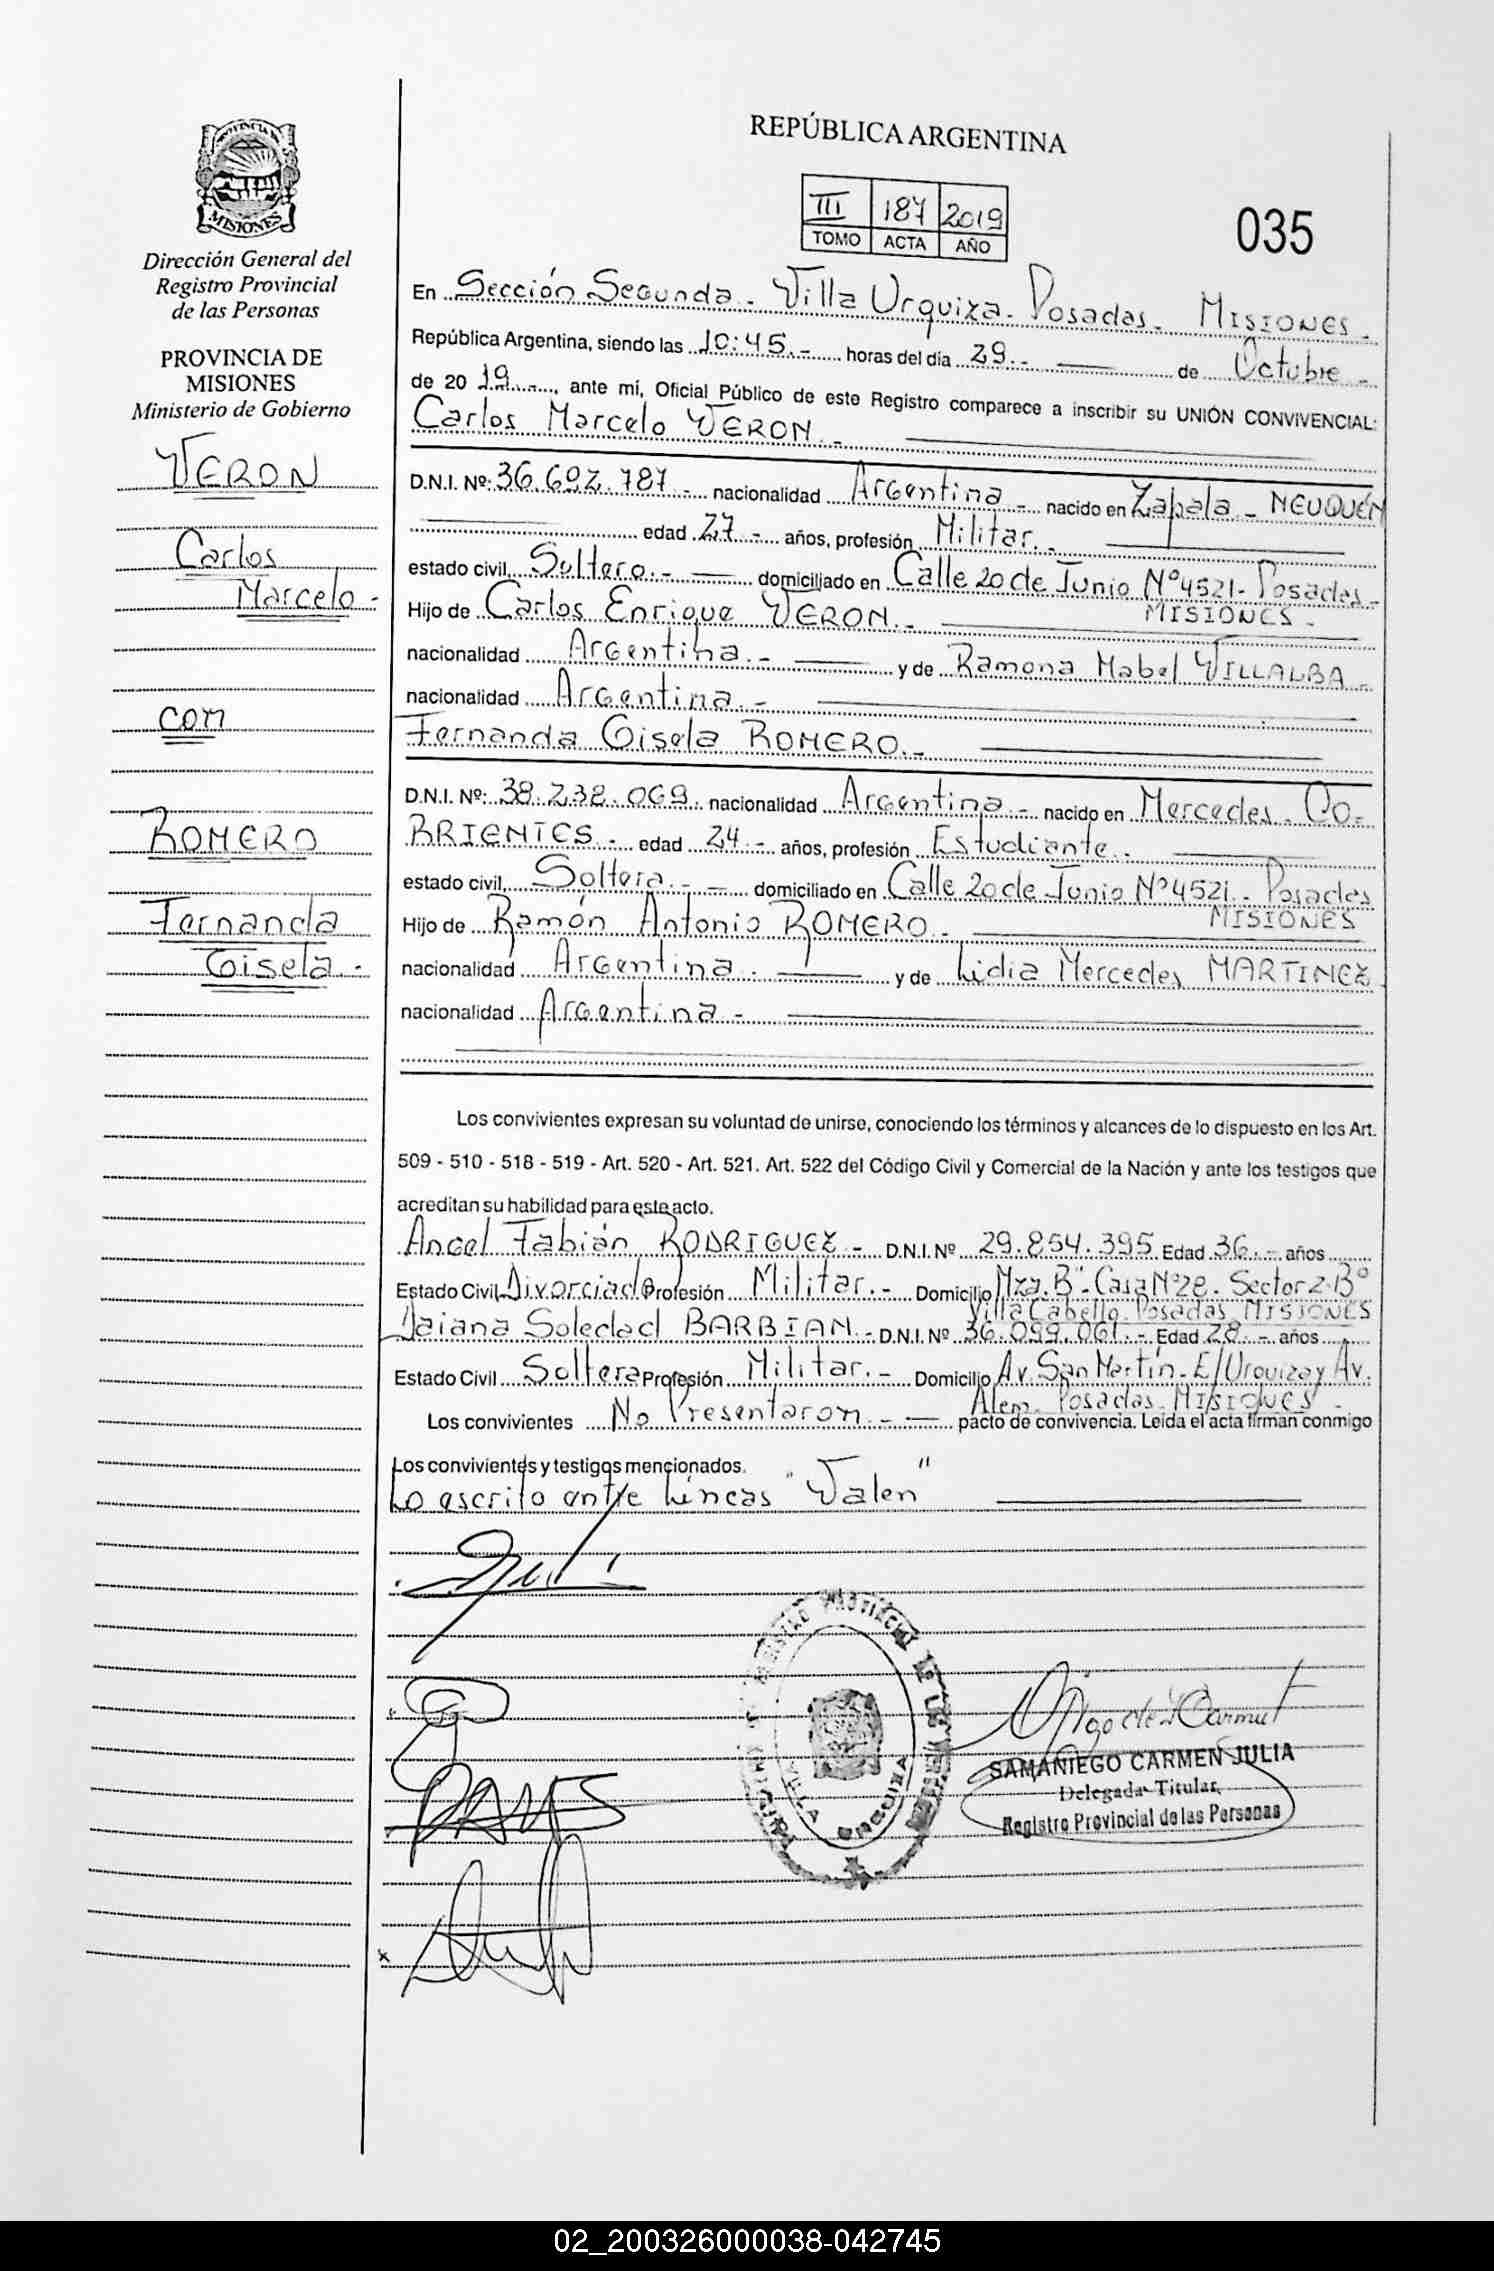 REPÚBLICA ARGENTINA
III 187 2019
TOMO ACTA AÑO
035
PROVINCIA DE
MISIONES
Dirección General del
Registro Provincial
de las Personas
PROVINCIA DE
MISIONES
Ministerio de Gobierno
VERON
Carlos
Marcelo -
con
ROMERO
Fernanda
Gisela -
En Sección Segunda - Villa Urquiza - Posadas - MISIONES -
República Argentina, siendo las 10:45.- horas del día 29.- de Octubre -
de 2019.-, ante mí, Oficial Público de este Registro comparece a inscribir su UNIÓN CONVIVENCIAL:
Carlos Marcelo VERON.-
D.N.I. Nº: 36.692.787.- nacionalidad Argentina - nacido en Zapala - NEUQUÉN
edad 27.- años, profesión Militar.-
estado civil Soltero.- domiciliado en Calle 20 de Junio Nº 4521- Posadas -
MISIONES -
Hijo de Carlos Enrique VERON.-
nacionalidad Argentina.- y de Ramona Mabel VILLALBA -
nacionalidad Argentina.-
Fernanda Gisela ROMERO.-
D.N.I. Nº: 38.238.069. nacionalidad Argentina.- nacido en Mercedes - CO-
RRIENTES.- edad 24.- años, profesión Estudiante.-
estado civil, Soltera.- domiciliado en Calle 20 de Junio Nº 4521.- Posadas
MISIONES
Hijo de Ramón Antonio ROMERO -
nacionalidad Argentina.- y de Lidia Mercedes MARTINEZ
nacionalidad Argentina -
Los convivientes expresan su voluntad de unirse, conociendo los términos y alcances de lo dispuesto en los Art.
509 - 510 - 518 - 519 - Art. 520 - Art. 521. Art. 522 del Código Civil y Comercial de la Nación y ante los testigos que
acreditan su habilidad para este acto.
Angel Fabián RODRIGUEZ - D.N.I. Nº 29.854.395 Edad 36.- años
Estado Civil Divorciado Profesión Militar.- Domicilio Mza. B"- Casa Nº 28 - Sector 2- Bº
Villa Cabello Posadas MISIONES
Daiana Soledad BARBIAN.- D.N.I. Nº 36.099.061.- Edad 28.- años
Estado Civil Soltera Profesión Militar.- Domicilio Av. San Martín - E/Urquiza y Av.
Alem - Posadas - MISIONES -
Los convivientes No Presentaron.- pacto de convivencia. Leída el acta firman conmigo
Los convivientes y testigos mencionados.
Lo escrito entre líneas "Valen"
REGISTRO PROVINCIAL DE LAS PERSONAS
VILLA URQUIZA
SAMANIEGO CARMEN JULIA
Delegada Titular
Registro Provincial de las Personas
02_200326000038-042745